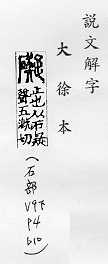 説文解字
大徐本
礙
止也从石疑
聲五漑切
(石部
V9下
P4
b10)